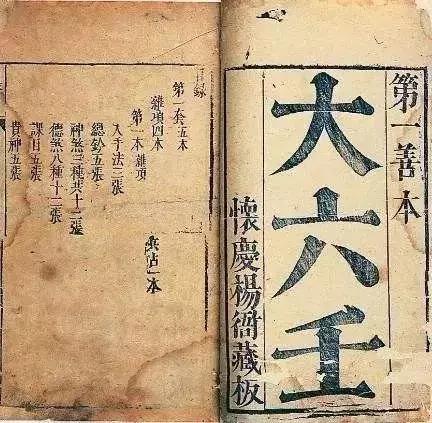 第一善本
大六壬
懷慶楊衙藏板
目錄
第一套五本
雜項四本
兵占一本
第一本 雜項
入手法三張
總鈐五張
神煞三種共十二張
德煞八種十二張
課日五張
貴神五張